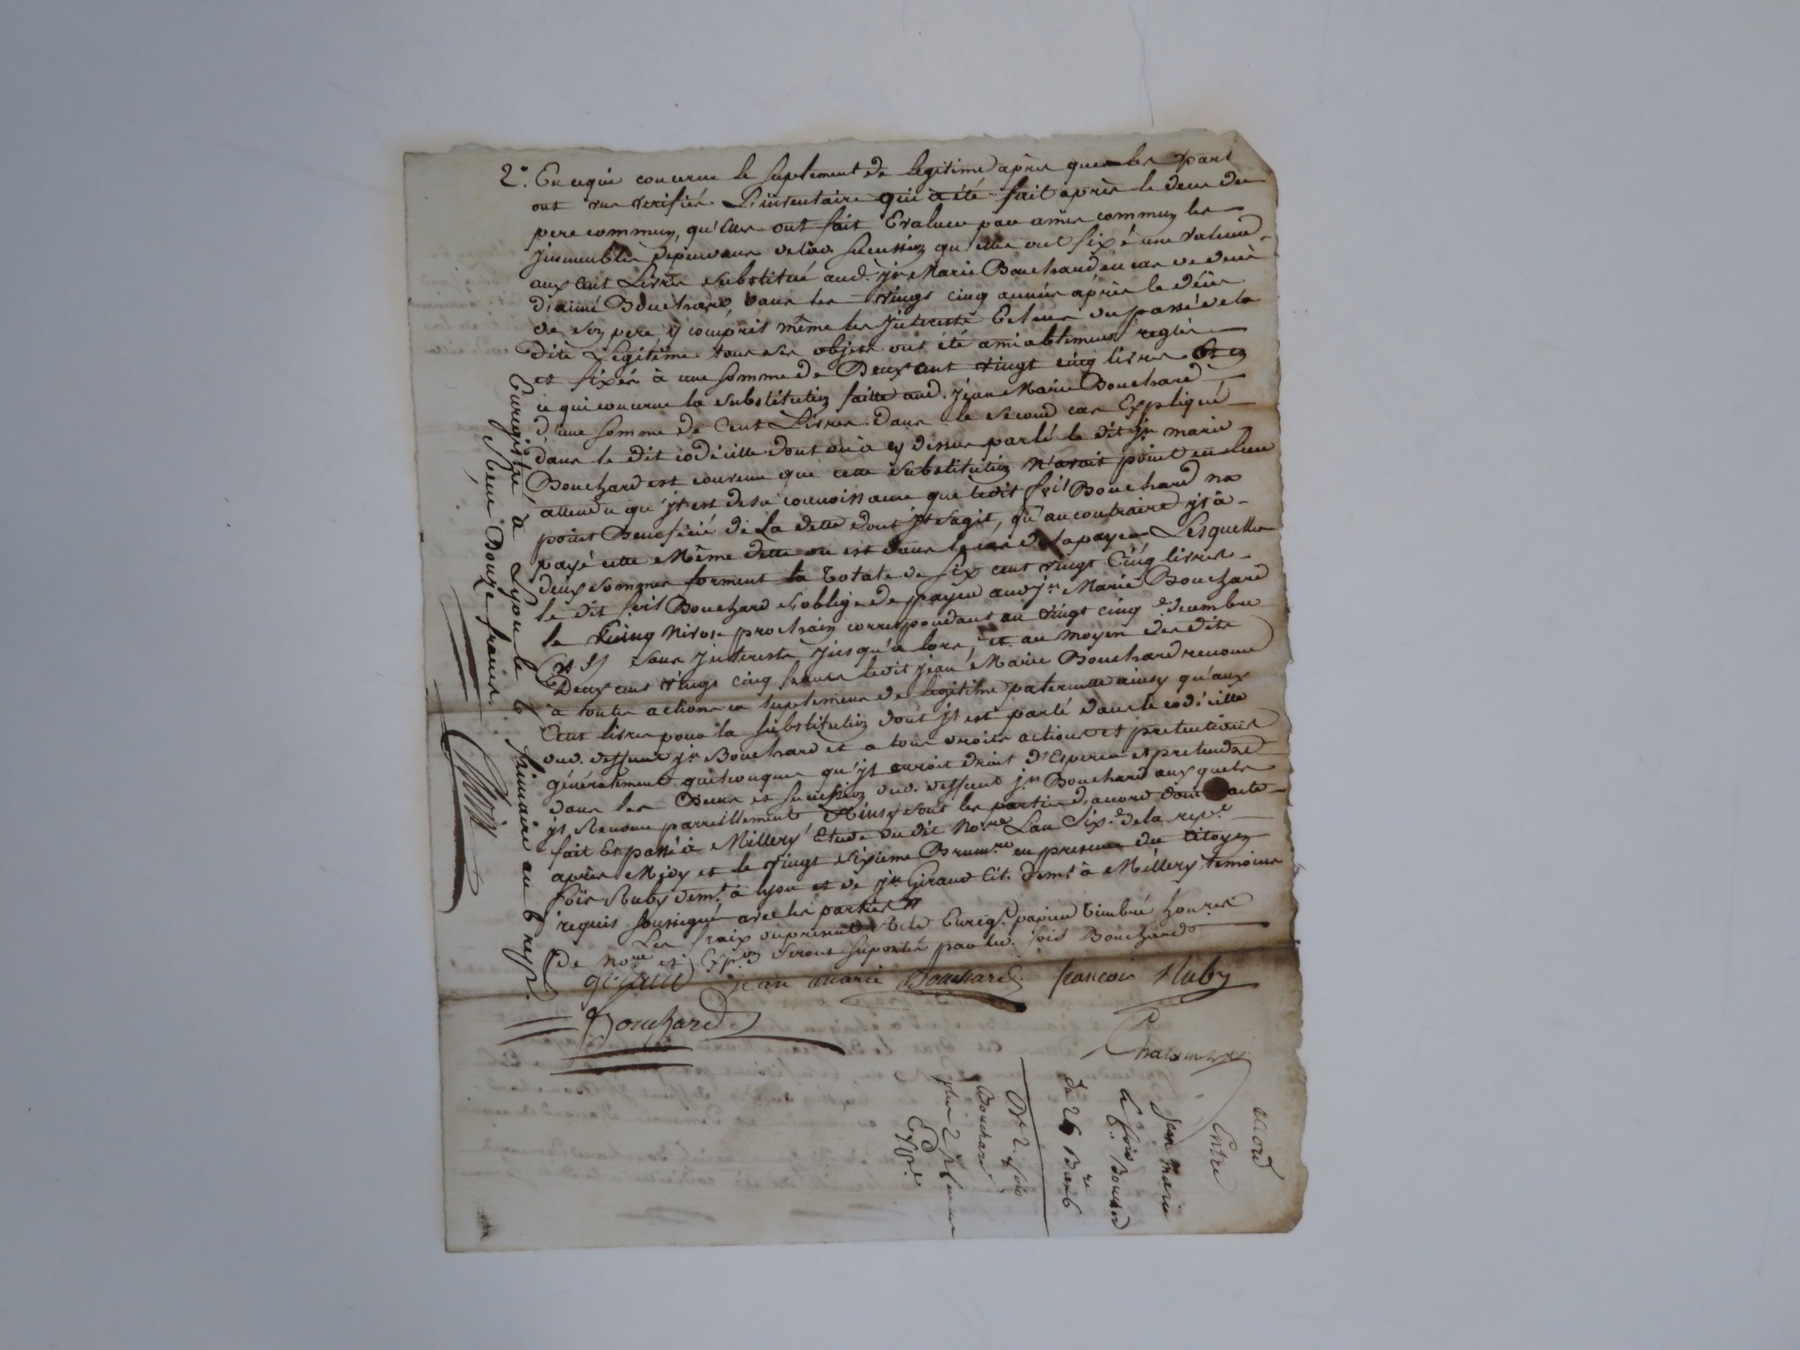 2°. En ce qui concerne le suplement de legitime après que les part
ont vu verifié L'inventaire qui à été fait après le deces du
pere commun, qu'elles ont fait Evaluer par amis communs les
jmmeubles dependans de lad. succession qu'elles ont fixé à une valeur
aux cent Livres substitué aud. jn Marie Bouchard en cas de decès
d'aimé Bouchard, dans les vingt cinq années après le décès
de son pere y compris même les jnterests Echeus du passé de la
dite Légitime tous ces objets ont été amiablement reglés
et fixés à une somme de Deux cent vingt cinq livres Et en
ce qui concerne la substitution faitte aud. jean Marie Bouchard
d'une somme de Cent Livres dans le second cas Expliqué
dans le dit codicille dont on à cy dessus parlé le dit jn marie
Bouchard est convenu que cette substitution n'avoit point eu lieu
attendu qu'jl est de sa connoissance que ledit fois Bouchard na
point Beneficié de La dette dont jl sagit, qu'au contraire jl à
payé cette Même dette ou est dans le cas de la payer Lesquelles
deux sommes forment la totale de six cent vingt Cinq livres
le dit fois Bouchard s'oblige de payer aud jn Marie Bouchard
le Cinq Nivose prochain correspondant au vingt cinq decembre
sans jnterests jusqu'à lors, et au moyen des dits
Deux cent vingt cinq francs ledit jean Marie Bouchard renonce
a toutes actions en suplement de legitime paternelle ainsy qu'aux
Cent livres pour la substitution dont jl est parlé dans le codicille
dud. deffunt jn Bouchard et a tous droits actions et pretentions
généralement quelconques qu'jl auroit droit d'Esperer et pretendre
dans les Biens et succession dud. deffunt jn Bouchard aux quels
jl Renonce pareillement Ainsy sont les parties d'acord dont acte
fait Et passé à Millery Etude du dit Nore L'an Six.e de la rep.e
après Mjdy et le vingt sixieme Brum.re en presence du Citoyen
fois Ruby dem.t à Lyon et de jn Giraud Cit. dem.t à Millery temoins
requis soussigné avec les parties
Les fraix du present acte Enreg.t papier timbré honres
de Nore et Exp.on seront suportés par led. fois Bouchard
giraud jean marie Bouchard françois Ruby
Bouchard
Enregistré à Lyon le 6 frimaire an 6 rep.
Reçu Douze francs
acord
Entre
Jean Marie
& fois Bouchard
du 26 Bre an 6
Bouchard
Exp.e